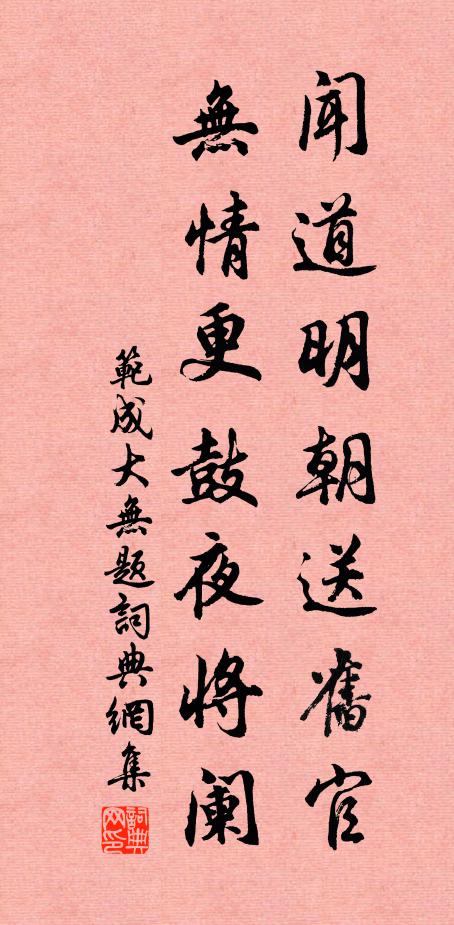 聞道明朝送舊官
無情更鼓夜將闌
範成大無題詞典網集
詞典网印